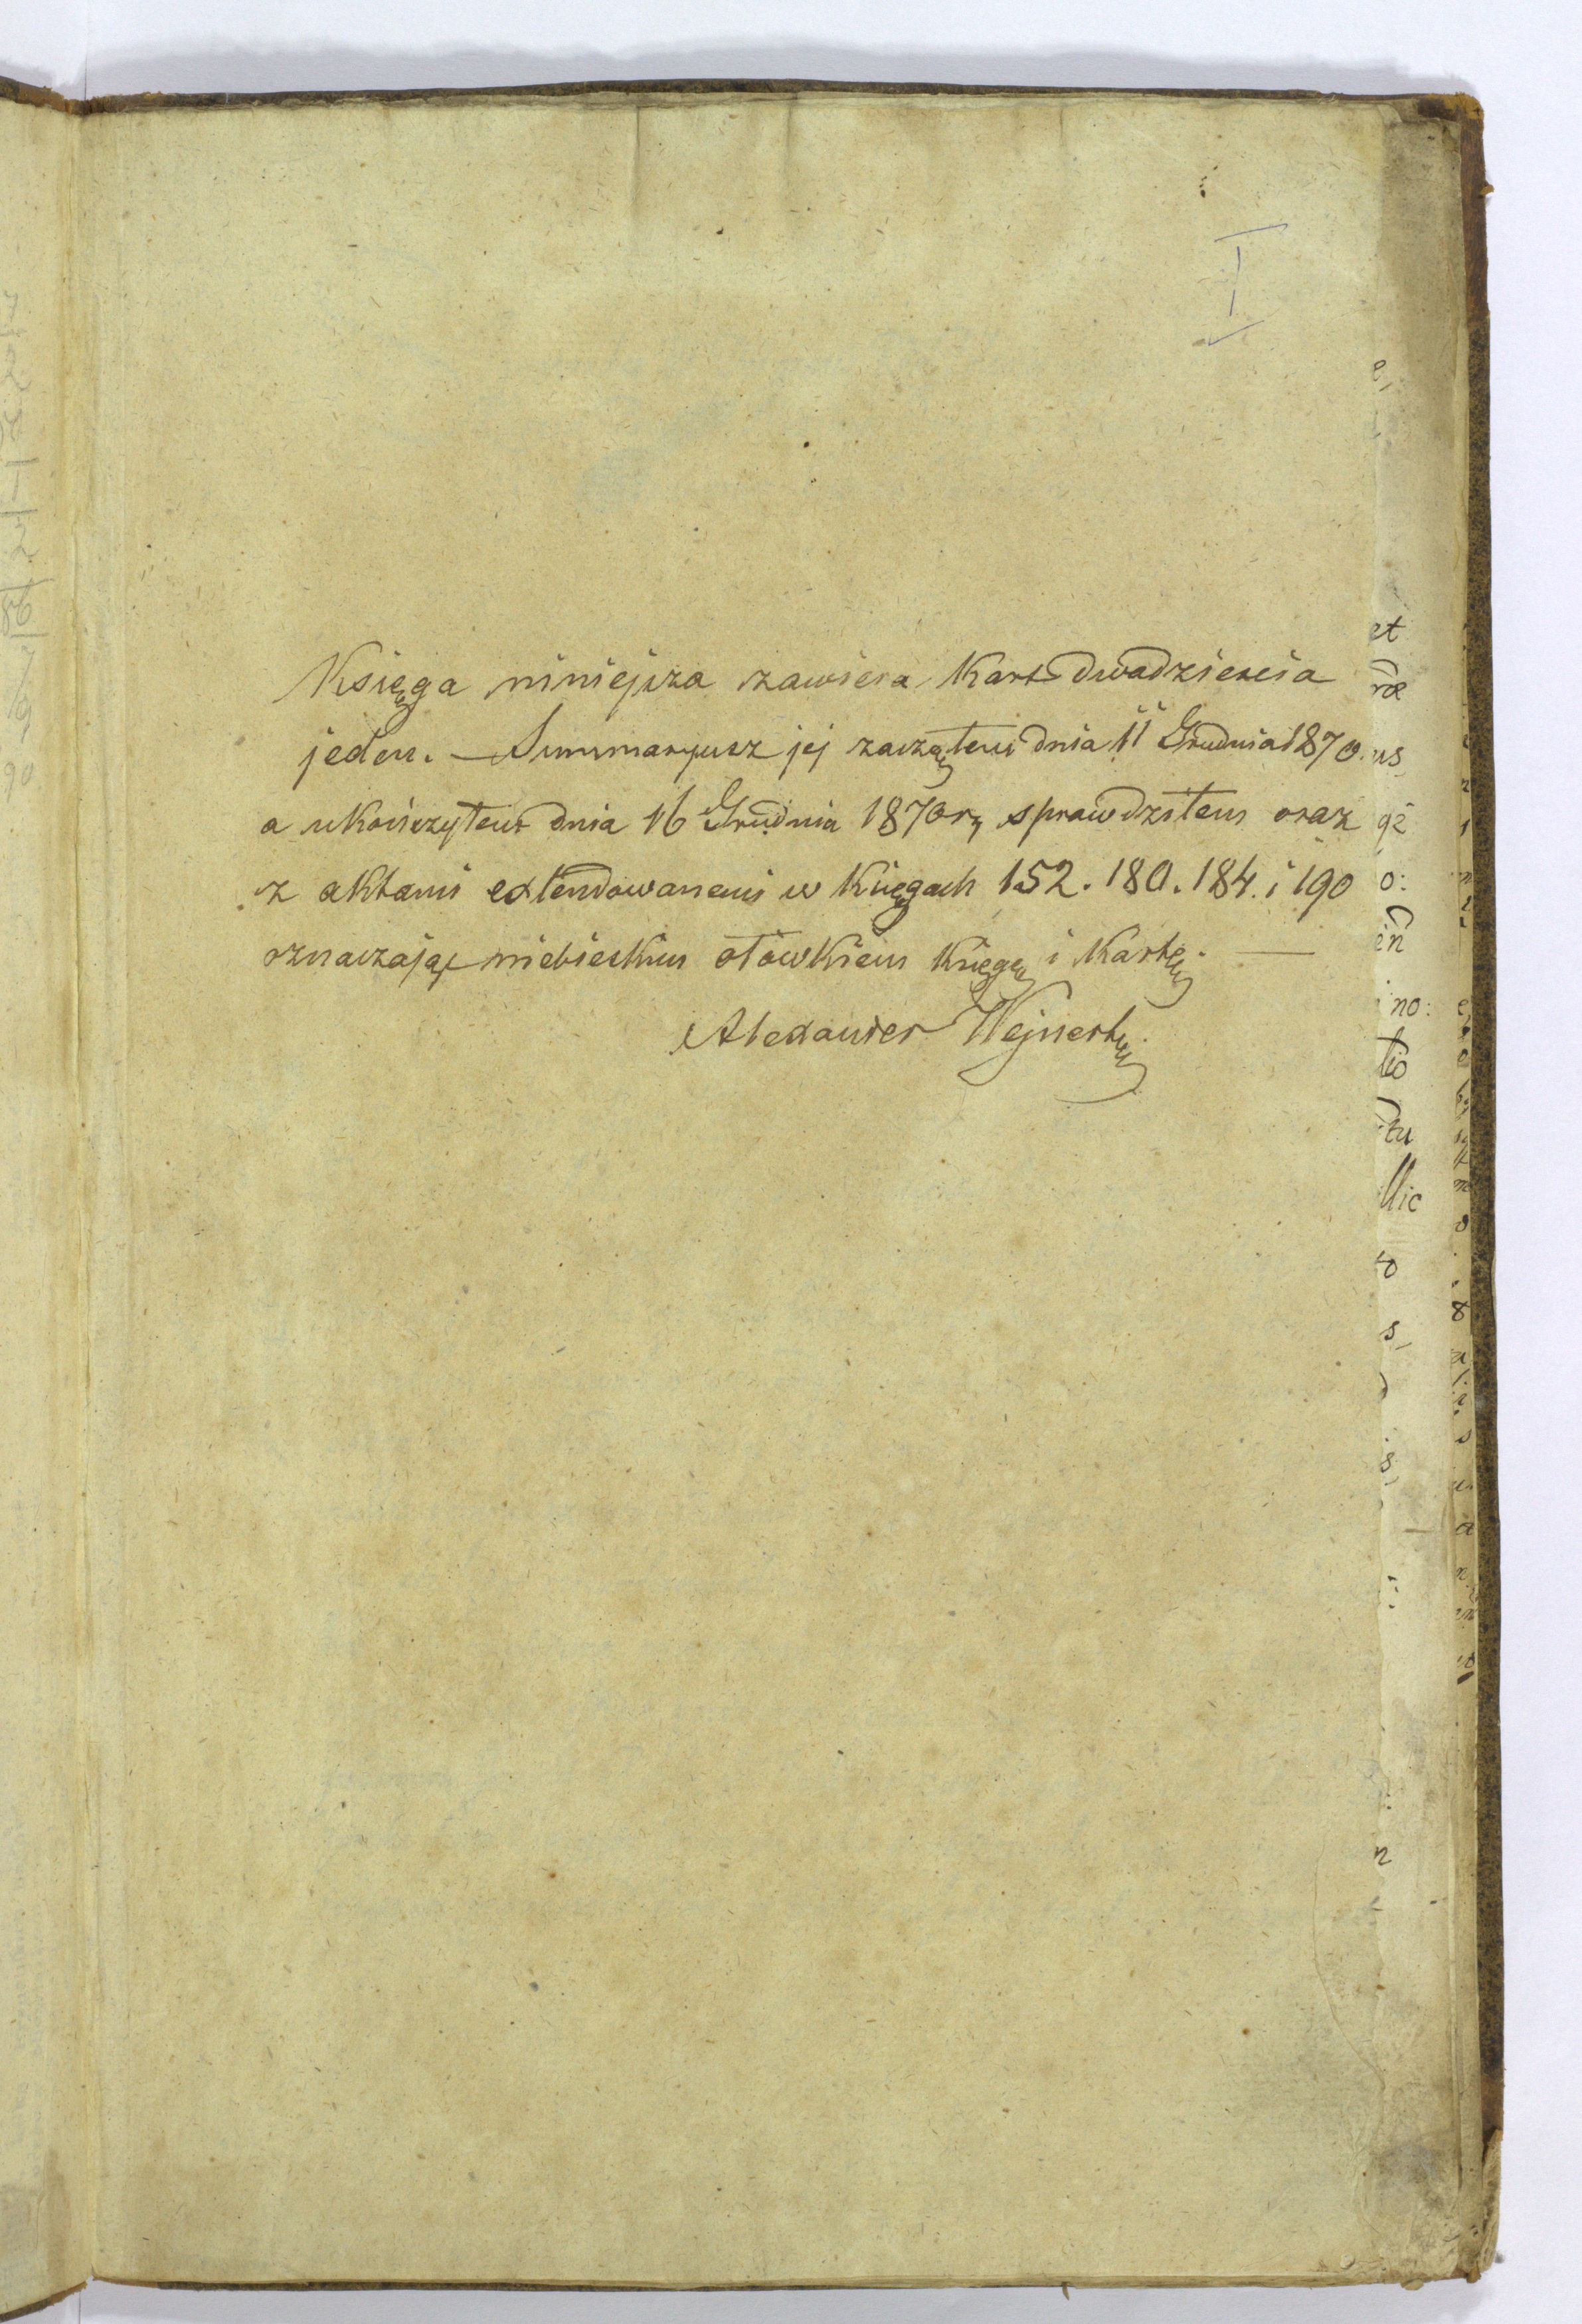 I
Księga niniejsza zawiera Kart dwadzieścia
jeden. — Summaryusz jej zacząłem dnia 11 Grudnia 1870.
a ukończyłem dnia 16 Grudnia 1870 r, sprawdziłem oraz
z aktami extendowanemi w Księgach 152. 180. 184. i 190
oznaczając niebieskim ołówkiem Księgę i Kartę. —
Alexander Wejnert